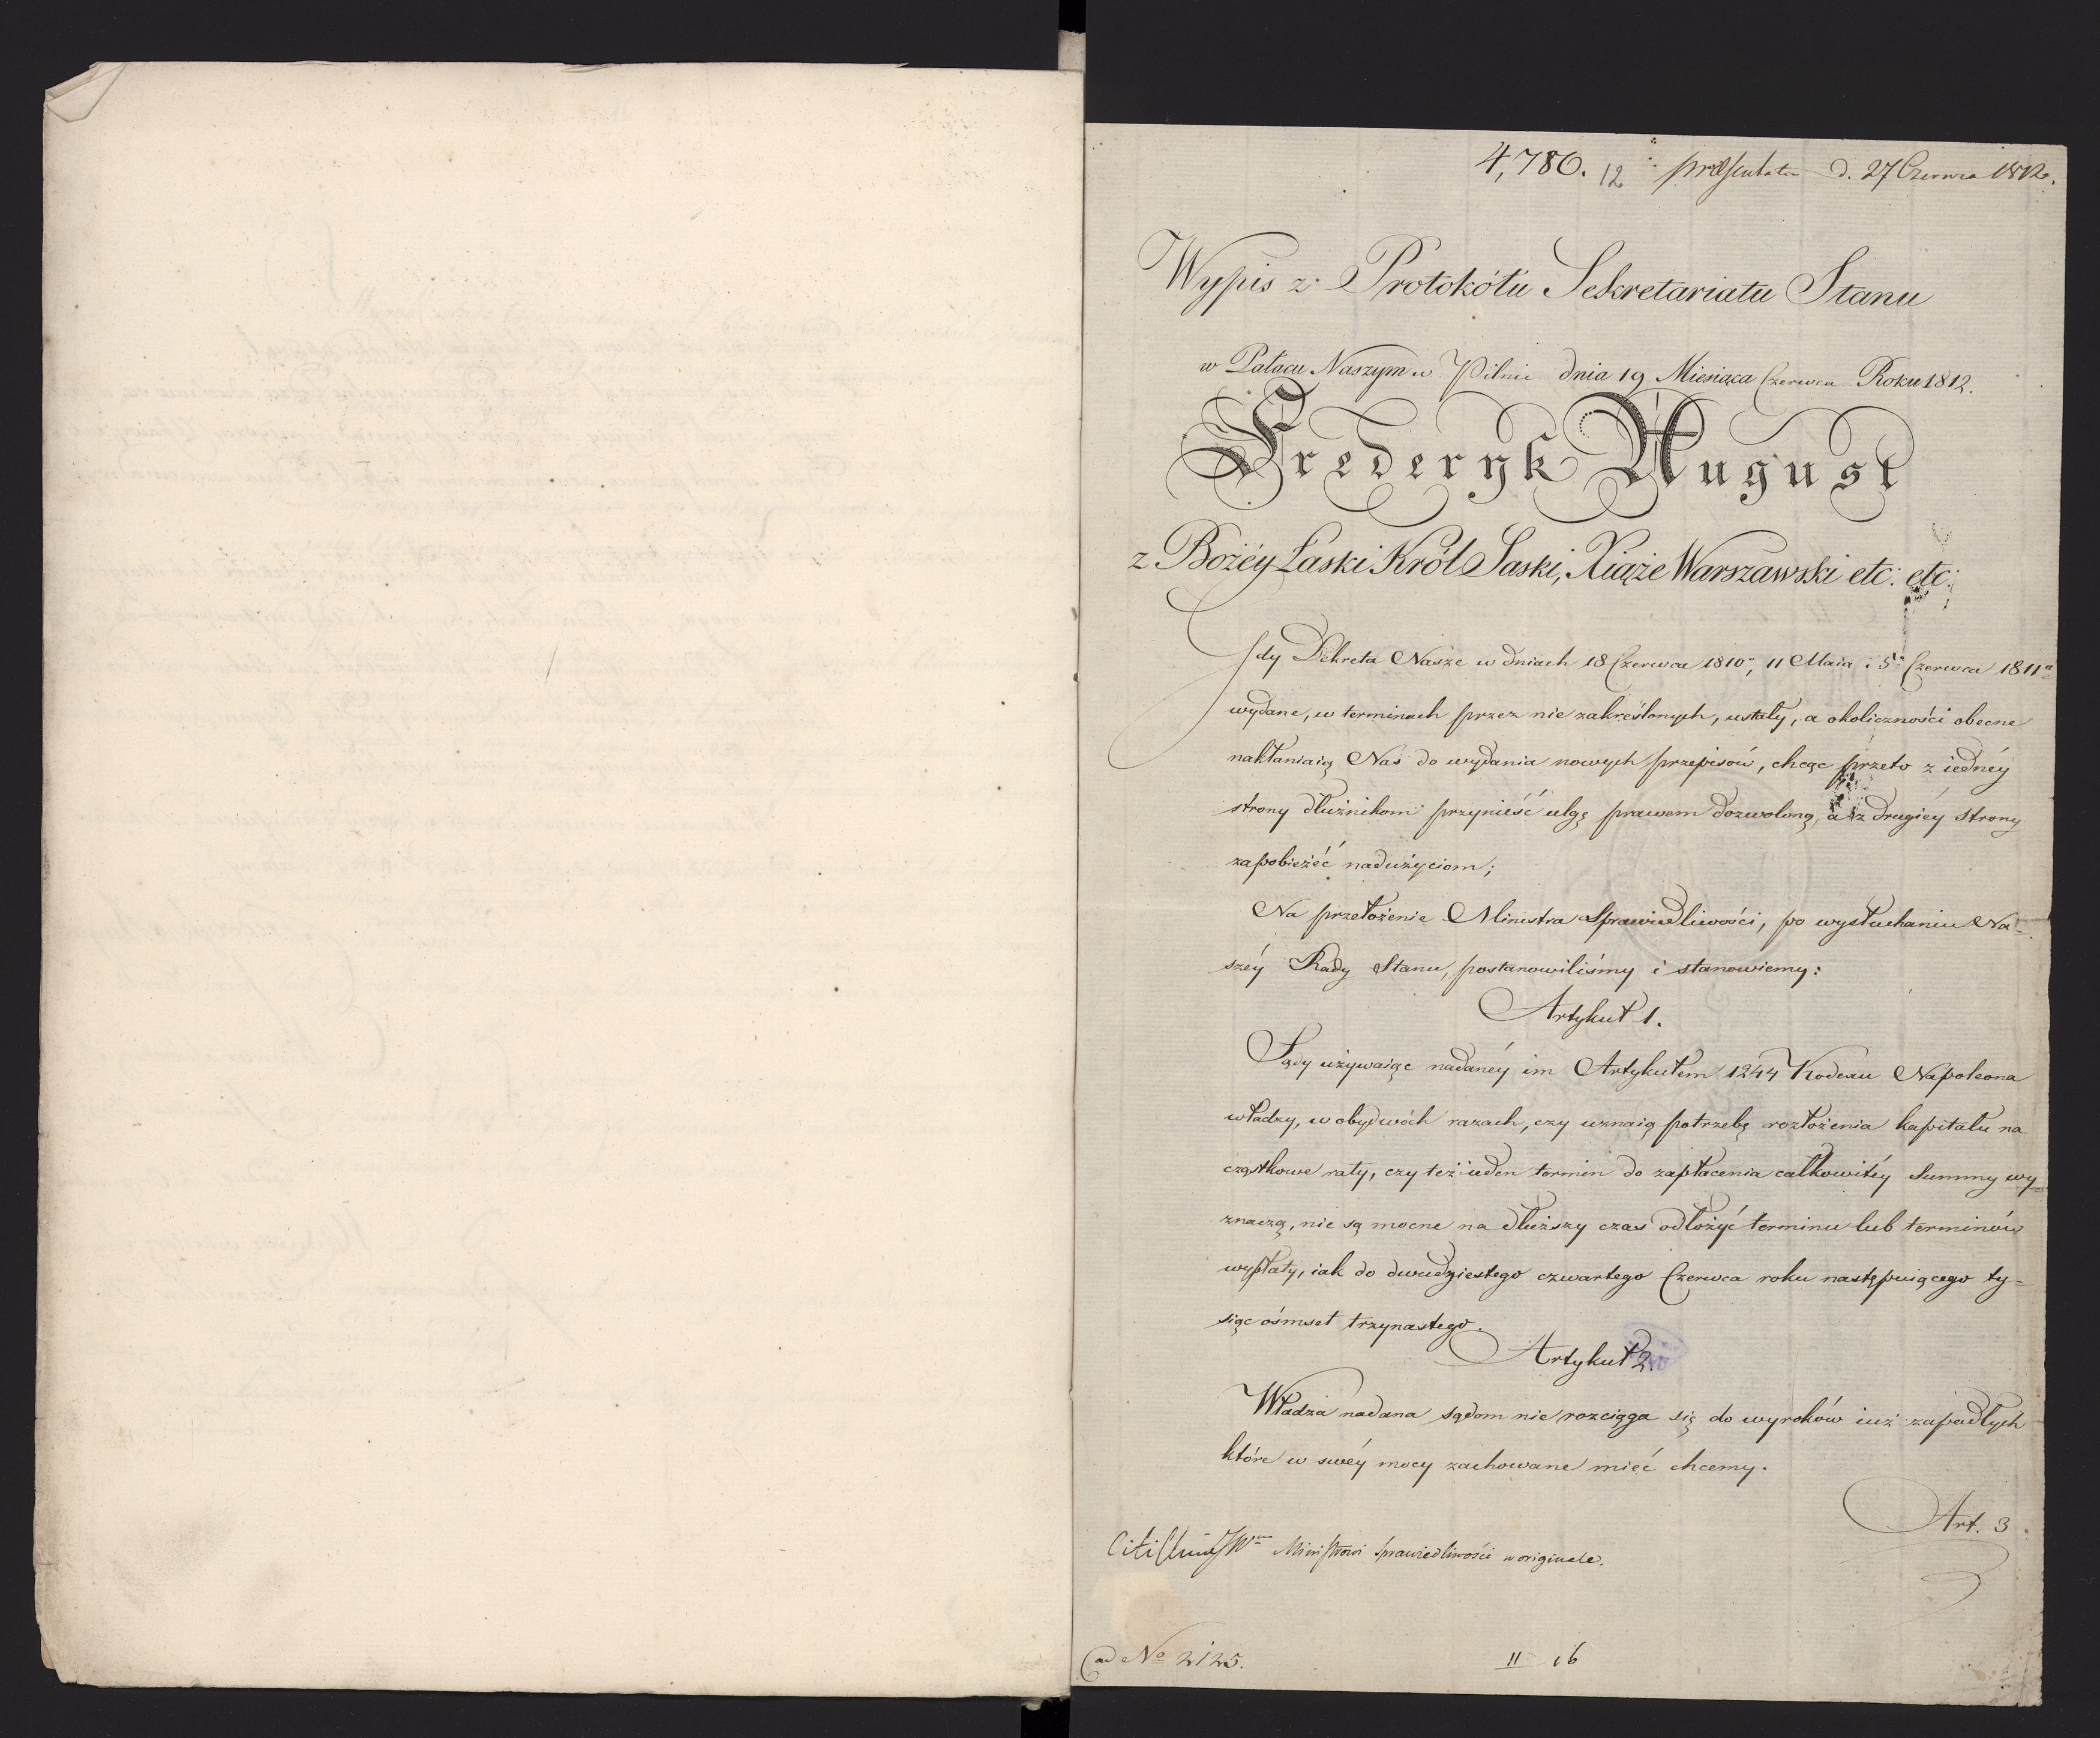 4,786. 12 præsentat d. 27 Czerwca 1812.
Wypis z Protokółu Sekretariatu Stanu
w Pałacu Naszym w Pilnic dnia 19 Miesiąca Czerwca Roku 1812.
Frederyk August
z Bożéy Łaski Król Saski, Xiąże Warszawski etc: etc:
Gdy Dekreta Nasze w dniach 18 Czerwca 1810, 11 Maia i 5 Czerwca 1811
wydane, w terminach przez nie zakréślonych, ustały, a okoliczności obecne
nakłaniaią Nas do wydania nowych przepisów, chcąc przeto z iednéy
strony dłużnikom przynieść ulgę prawem dozwoloną, a z drugiéy strony
zapobieżéć nadużyciom;
Na przełożenie Ministra Sprawiedliwości, po wysłuchaniu Na=
széy Rady Stanu, postanowiliśmy i stanowiemy:
Artykuł 1.
Sądy używaiąc nadanéy im Artykułem 1244 Kodexu Napoleona
władzy, w obydwóch razach, czy uznaią potrzebę rozłożenia kapitału na
cząstkowe raty, czy też ieden termin do zapłacenia całkowitéy Summy wy=
znaczą, nie są mocne na dłuższy czas odłożyć terminu lub terminów
wypłaty, iak do dwudziestego czwartego Czerwca roku następuiącego ty=
siąc ośmset trzynastego.
Artykuł 2.
Władza nadana sądom nie rozciąga się do wyroków iuż zapadłych
które w swéy mocy zachowane miéć chcemy.
Art. 3.
Ministrowi Sprawiedliwości w originale.
ad No 2125.
II 16